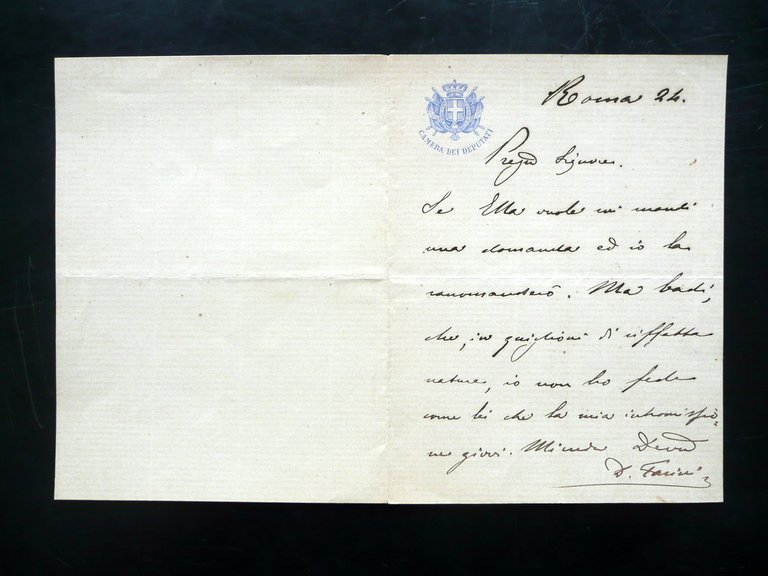 CAMERA DEI DEPUTATI
Roma 24.
Pregō Signore.
Se Ella vuole mi mandi
una domanda ed io la
raccomanderò. Ma badi,
che, in quistioni di siffatta
natura, io non ho fede
come lei che la mia intromissio=
ne giovi. Mi creda Devō
D. Farini